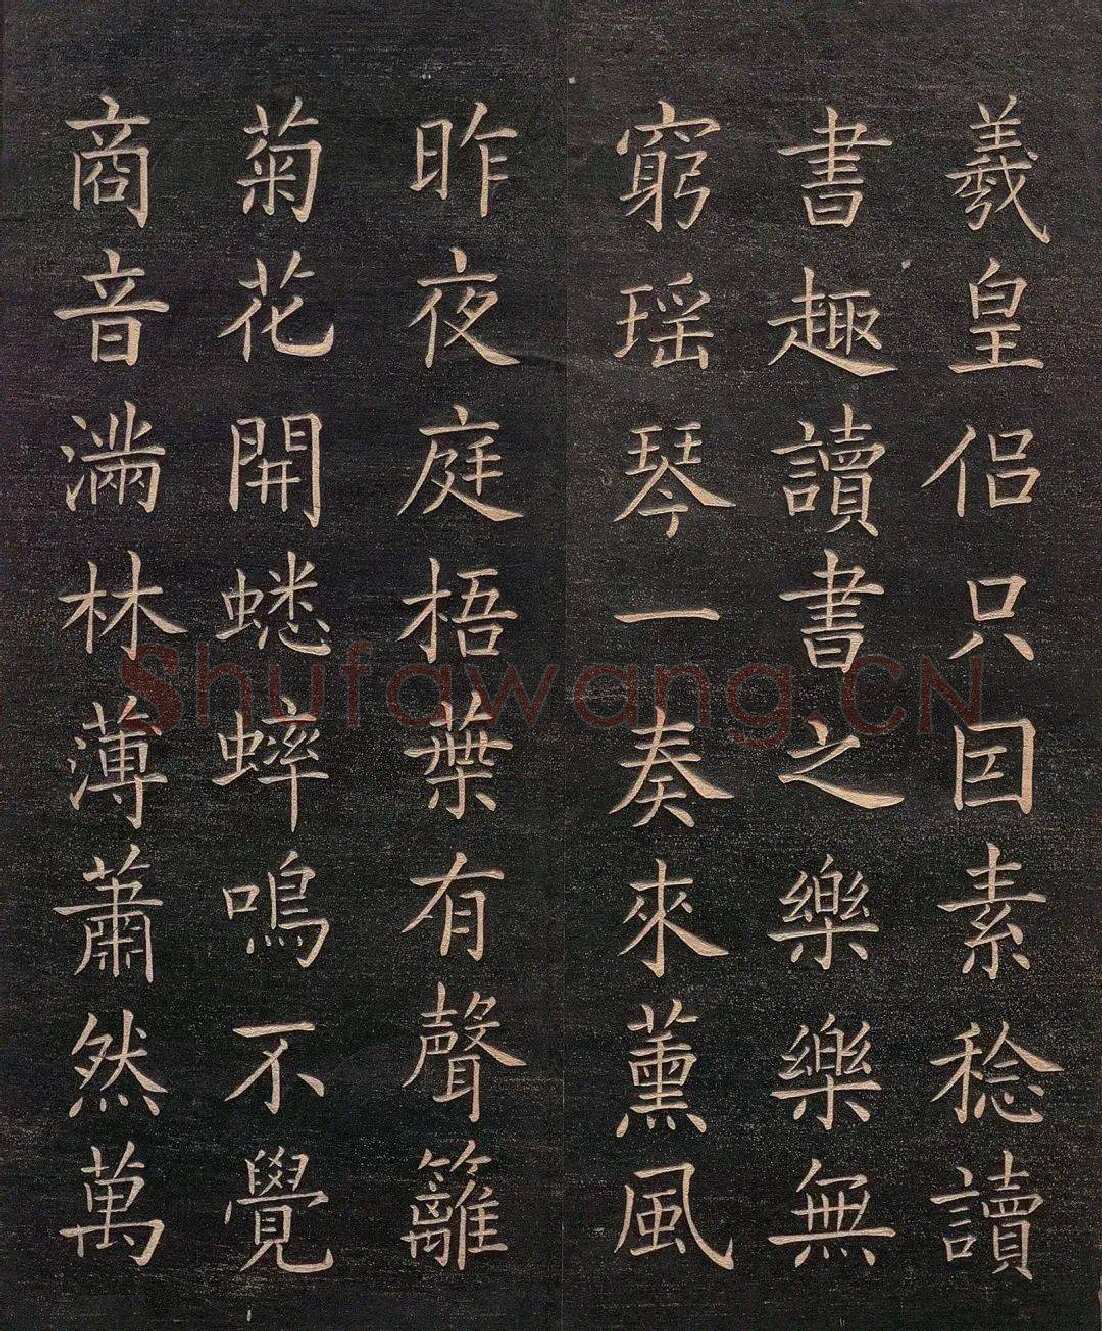 羲皇侶只囙素稔讀
書趣讀書之樂樂無
窮瑶琴一奏來薰風
昨夜庭梧葉有聲籬
菊花開蟋蟀鳴不覺
商音滿林薄蕭然萬
Shufawang.CN